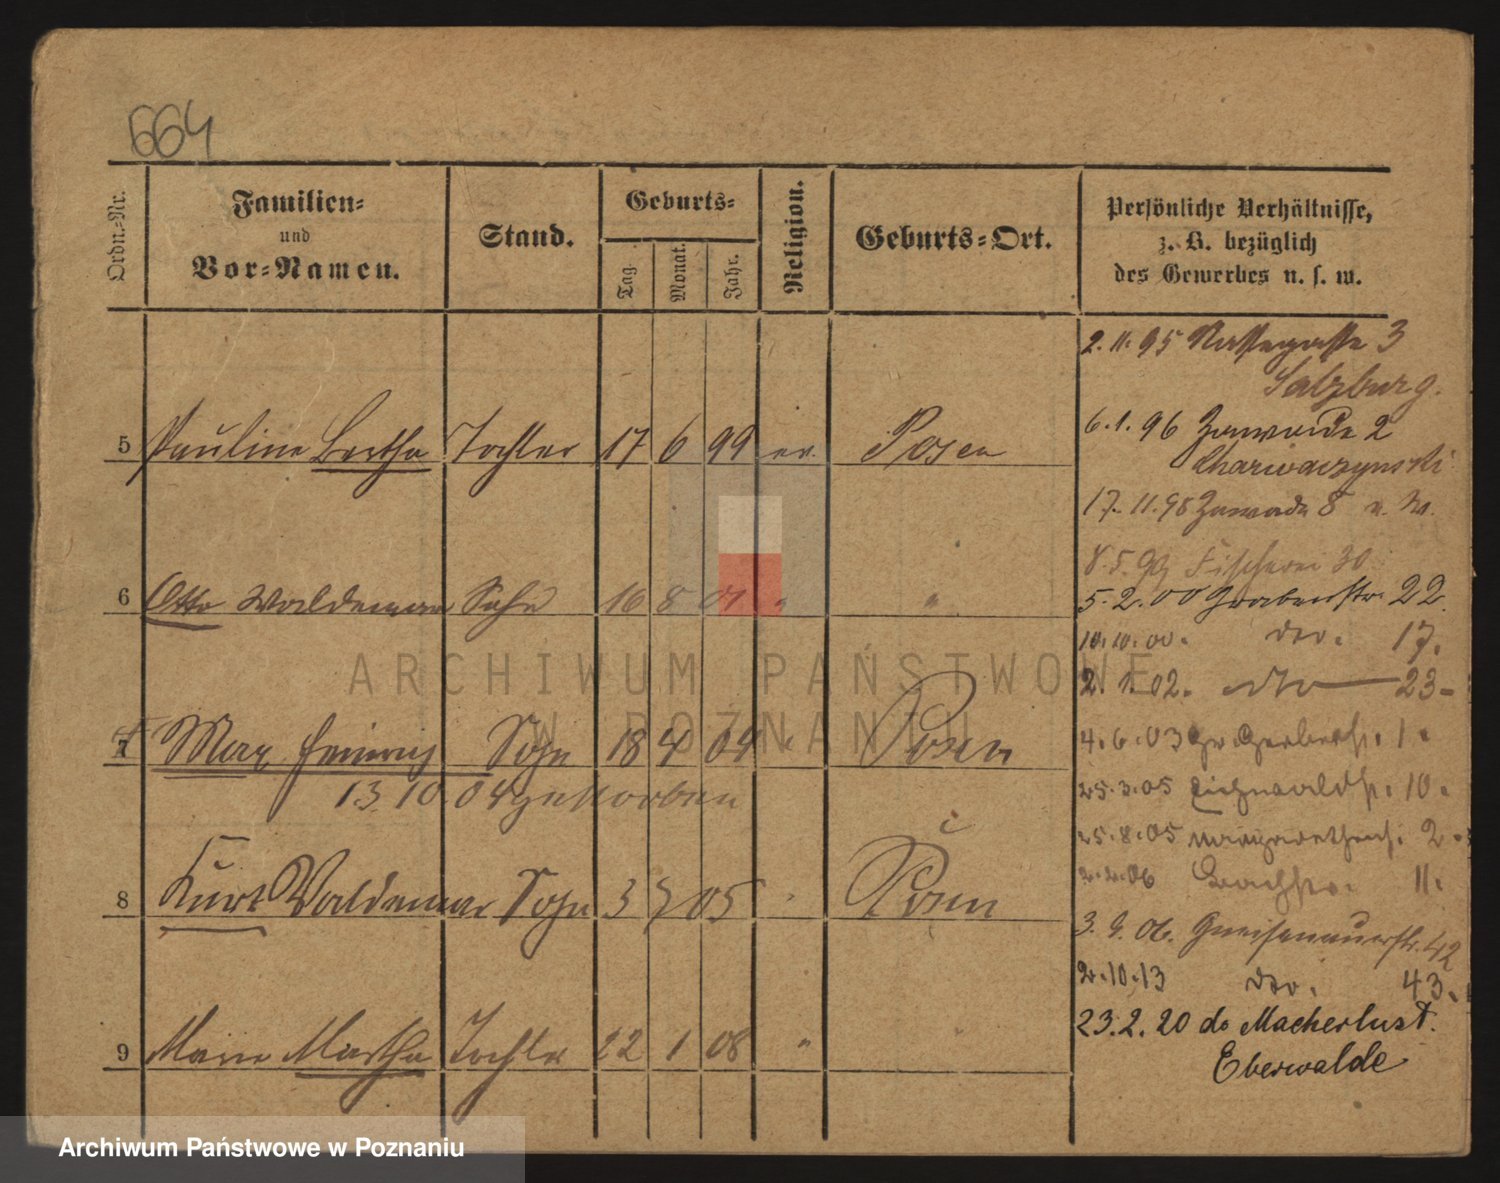 664
Ordn.-Nr.
Familien-
und
Vor-Namen.
Stand.
Geburts-
Tag.
Monat.
Jahr.
Religion.
Geburts-Ort.
Persönliche Verhältnisse,
z. B. bezüglich
des Gewerbes u. s. w.
2.11.95 Nassegasse 3
Salzburg.
6.1.96 Zawade 2
5 Pauline Bertha Tochter 17 6 99 ev. Posen
17.11.98 Zawade 8 u. W.
8.5.99 Fischerei 30
6 Otto Waldemar Sohn 16 8 01 " "
5.2.00 Grabenstr. 22.
10.10.00. dto. 17.
2.1.02. dto 23-
7 Max Heinrich Sohn 18 4 04 " Posen
4.6.03 Gr. Gerberstr. 1.
13 10 04 gestorben
25.3.05 Eichwaldstr. 10.
25.8.05 Margarethenstr. 2.
8 Kurt Waldemar Sohn 3 7 05 " Posen
2.2.06 Bachstr. 11.
3.9.06. Gneisenauerstr. 42
2.10.13 dto. 43.
23.2.20 do Macherlust.
9 Marie Martha Tochter 22 1 08 " "
Eberwalde
ARCHIWUM PAŃSTWOWE
W POZNANIU
Archiwum Państwowe w Poznaniu